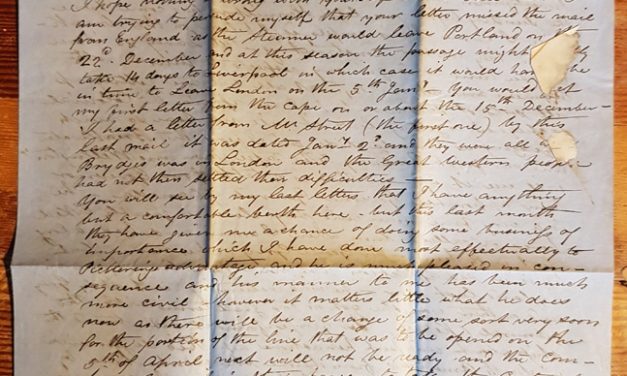 I hope nothing
am trying to persuade myself that your letter missed the mail
from England as the Steamer would leave Portland on the
22d. December and at this season the passage might
take 14 days to Liverpool in which case it would have
in time to Leave London on the 5th Jany. You would get
my first letter from the Cape on or about the 15th December
I had a letter from Mr Street (the first one) by this
last mail it was dated Jany. 2d. and they were all
Brydges was in London and the Great Western people
had not then settled their difficulties
You will see by my last letters that I have anything
but a comfortable berth here - but this last month
they have given me a chance of doing some business of
importance which I have done most effectually to
Pickerings advantage and he is much pleased in con-
sequence and his manner to me has been much
more civil however it matters little what he does
now as there will be a change of some sort very soon
for the portion of the line that was to be opened on the
of April next will not be ready and the com-